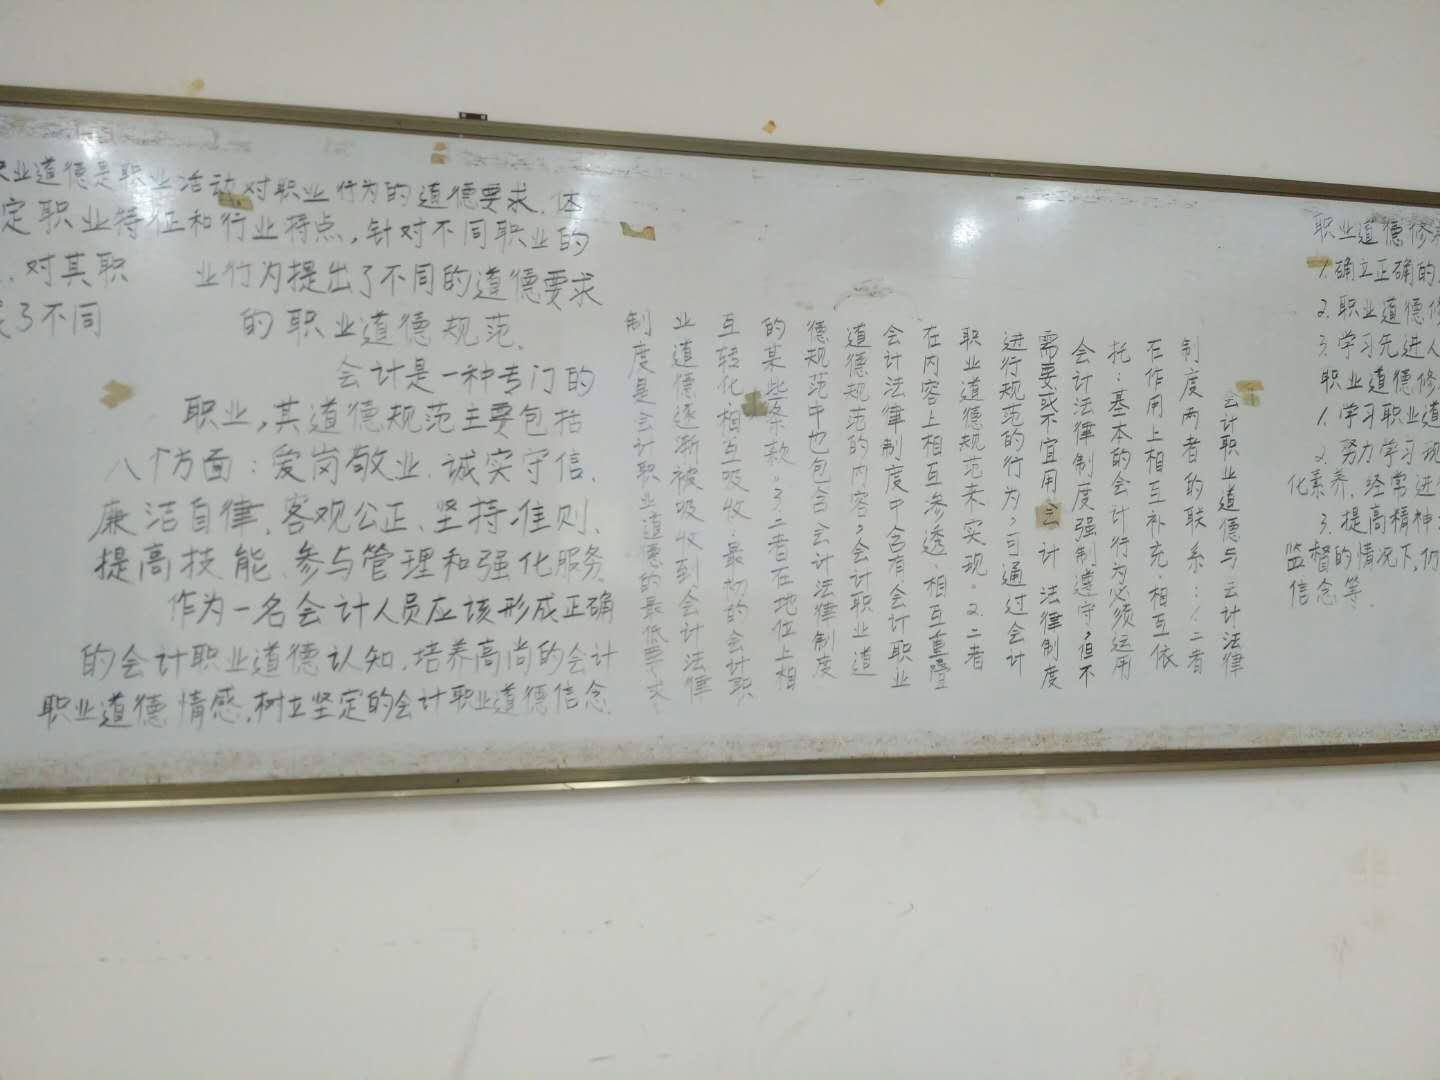 职业道德是职业活动对职业行为的道德要求.体
定职业特征和行业特点,针对不同职业的
.对其职 业行为提出了不同的道德要求
了不同 的职业道德规范.
会计是一种专门的
职业,其道德规范主要包括
八个方面:爱岗敬业.诚实守信.
廉洁自律、客观公正、坚持准则、
提高技能、参与管理和强化服务.
作为一名会计人员应该形成正确
的会计职业道德认知.培养高尚的会计
职业道德情感.树立坚定的会计职业道德信念.
云计职业道德与云计法律
制度两者的联系:1.二者
在作用上相互补充.相互依
托:基本的会计行为必须运用
会计法律制度强制遵守,但不
需要或不宜用会计法律制度
进行规范的行为,可通过会计
职业道德规范来实现。2.二者
在内容上相互渗透.相互重叠
会计法律制度中含有会计职业
道德规范的内容,会计职业道
德规范中也包含会计法律制度
的某些条款。3.二者在地位上相
互转化相互吸收.最初的会计职
业道德逐渐被吸收到会计法律
制度是会计职业道德的最低要求.
职业道德修
1.确立正确的
2.职业道德修
3.学习先进人
职业道德修
1.学习职业道
2.努力学习现
化素养.经常进
3.提高精神
监督的情况下,仍
信念等.